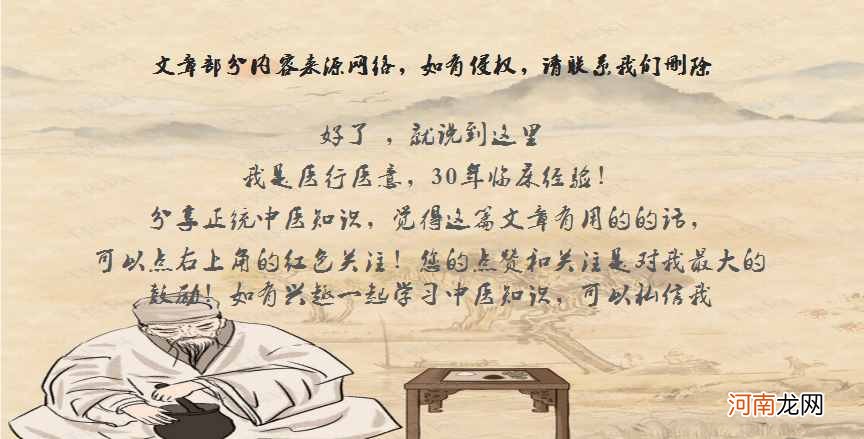 文章部分内容来源网络，如有侵权，请联系我们删除
好了 ，就说到这里
我是医行医意，30年临床经验！
分享正统中医知识，觉得这篇文章有用的的话，
可以点右上角的红色关注！您的点赞和关注是对我最大的
鼓励！如有兴趣一起学习中医知识，可以私信我
河南龙网